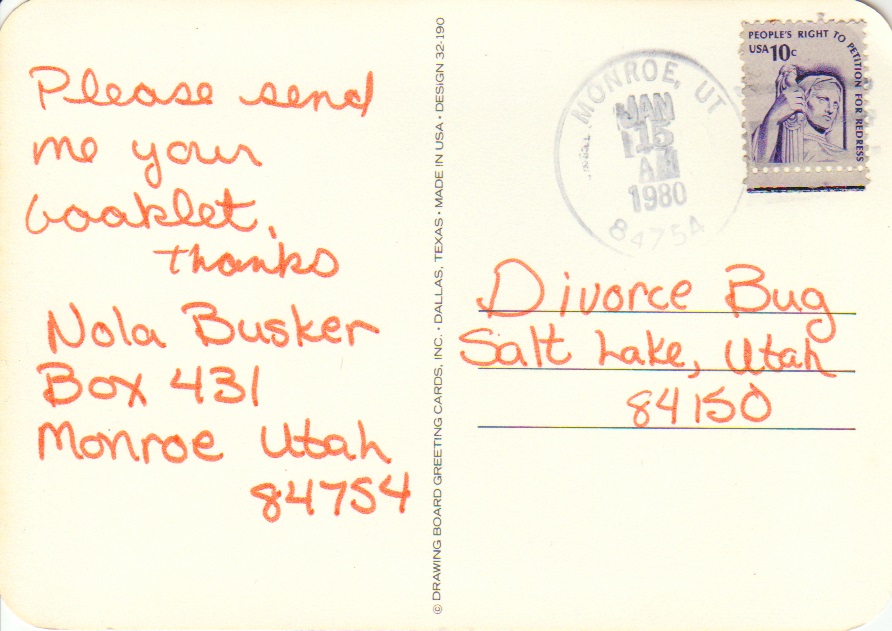 Please send
me your
booklet.
thanks
Nola Busker
Box 431
Monroe Utah
84754
© DRAWING BOARD GREETING CARDS, INC. • DALLAS, TEXAS • MADE IN USA • DESIGN 32-190
MONROE, UT
JAN
15
AM
1980
84754
PEOPLE'S RIGHT TO PETITION FOR REDRESS
USA 10c
Divorce Bug
Salt Lake, Utah
84150